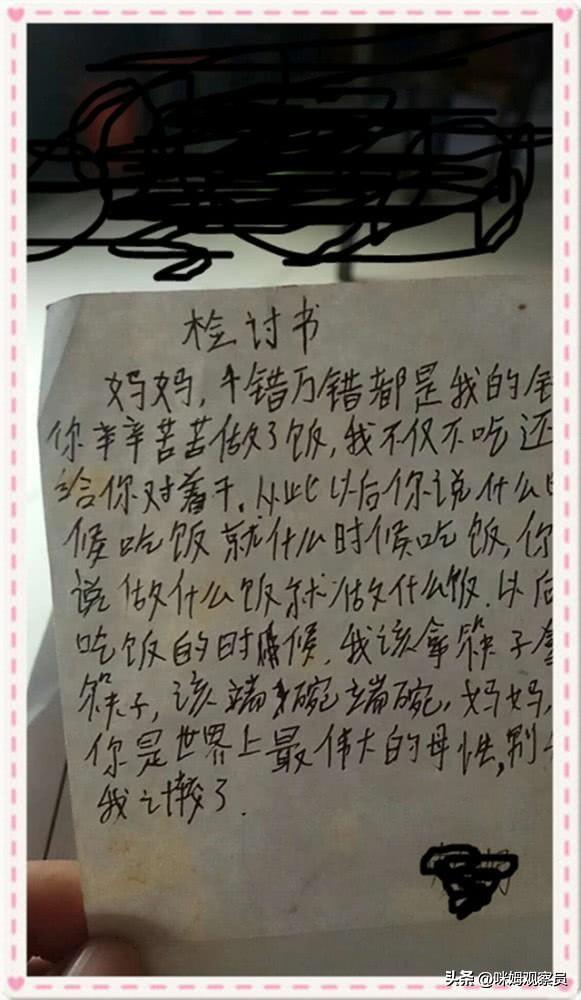 检讨书
妈妈，千错万错都是我的
你辛辛苦苦做了饭，我不仅不吃还
给你对着干。从此以后你说什么
候吃饭就什么时候吃饭，你
说做什么饭就做什么饭。以后
吃饭的时候，我该拿筷子拿
筷子，该端碗端碗。妈妈，
你是世界上最伟大的母性，别
我计较了.
头条@咪姆观察员